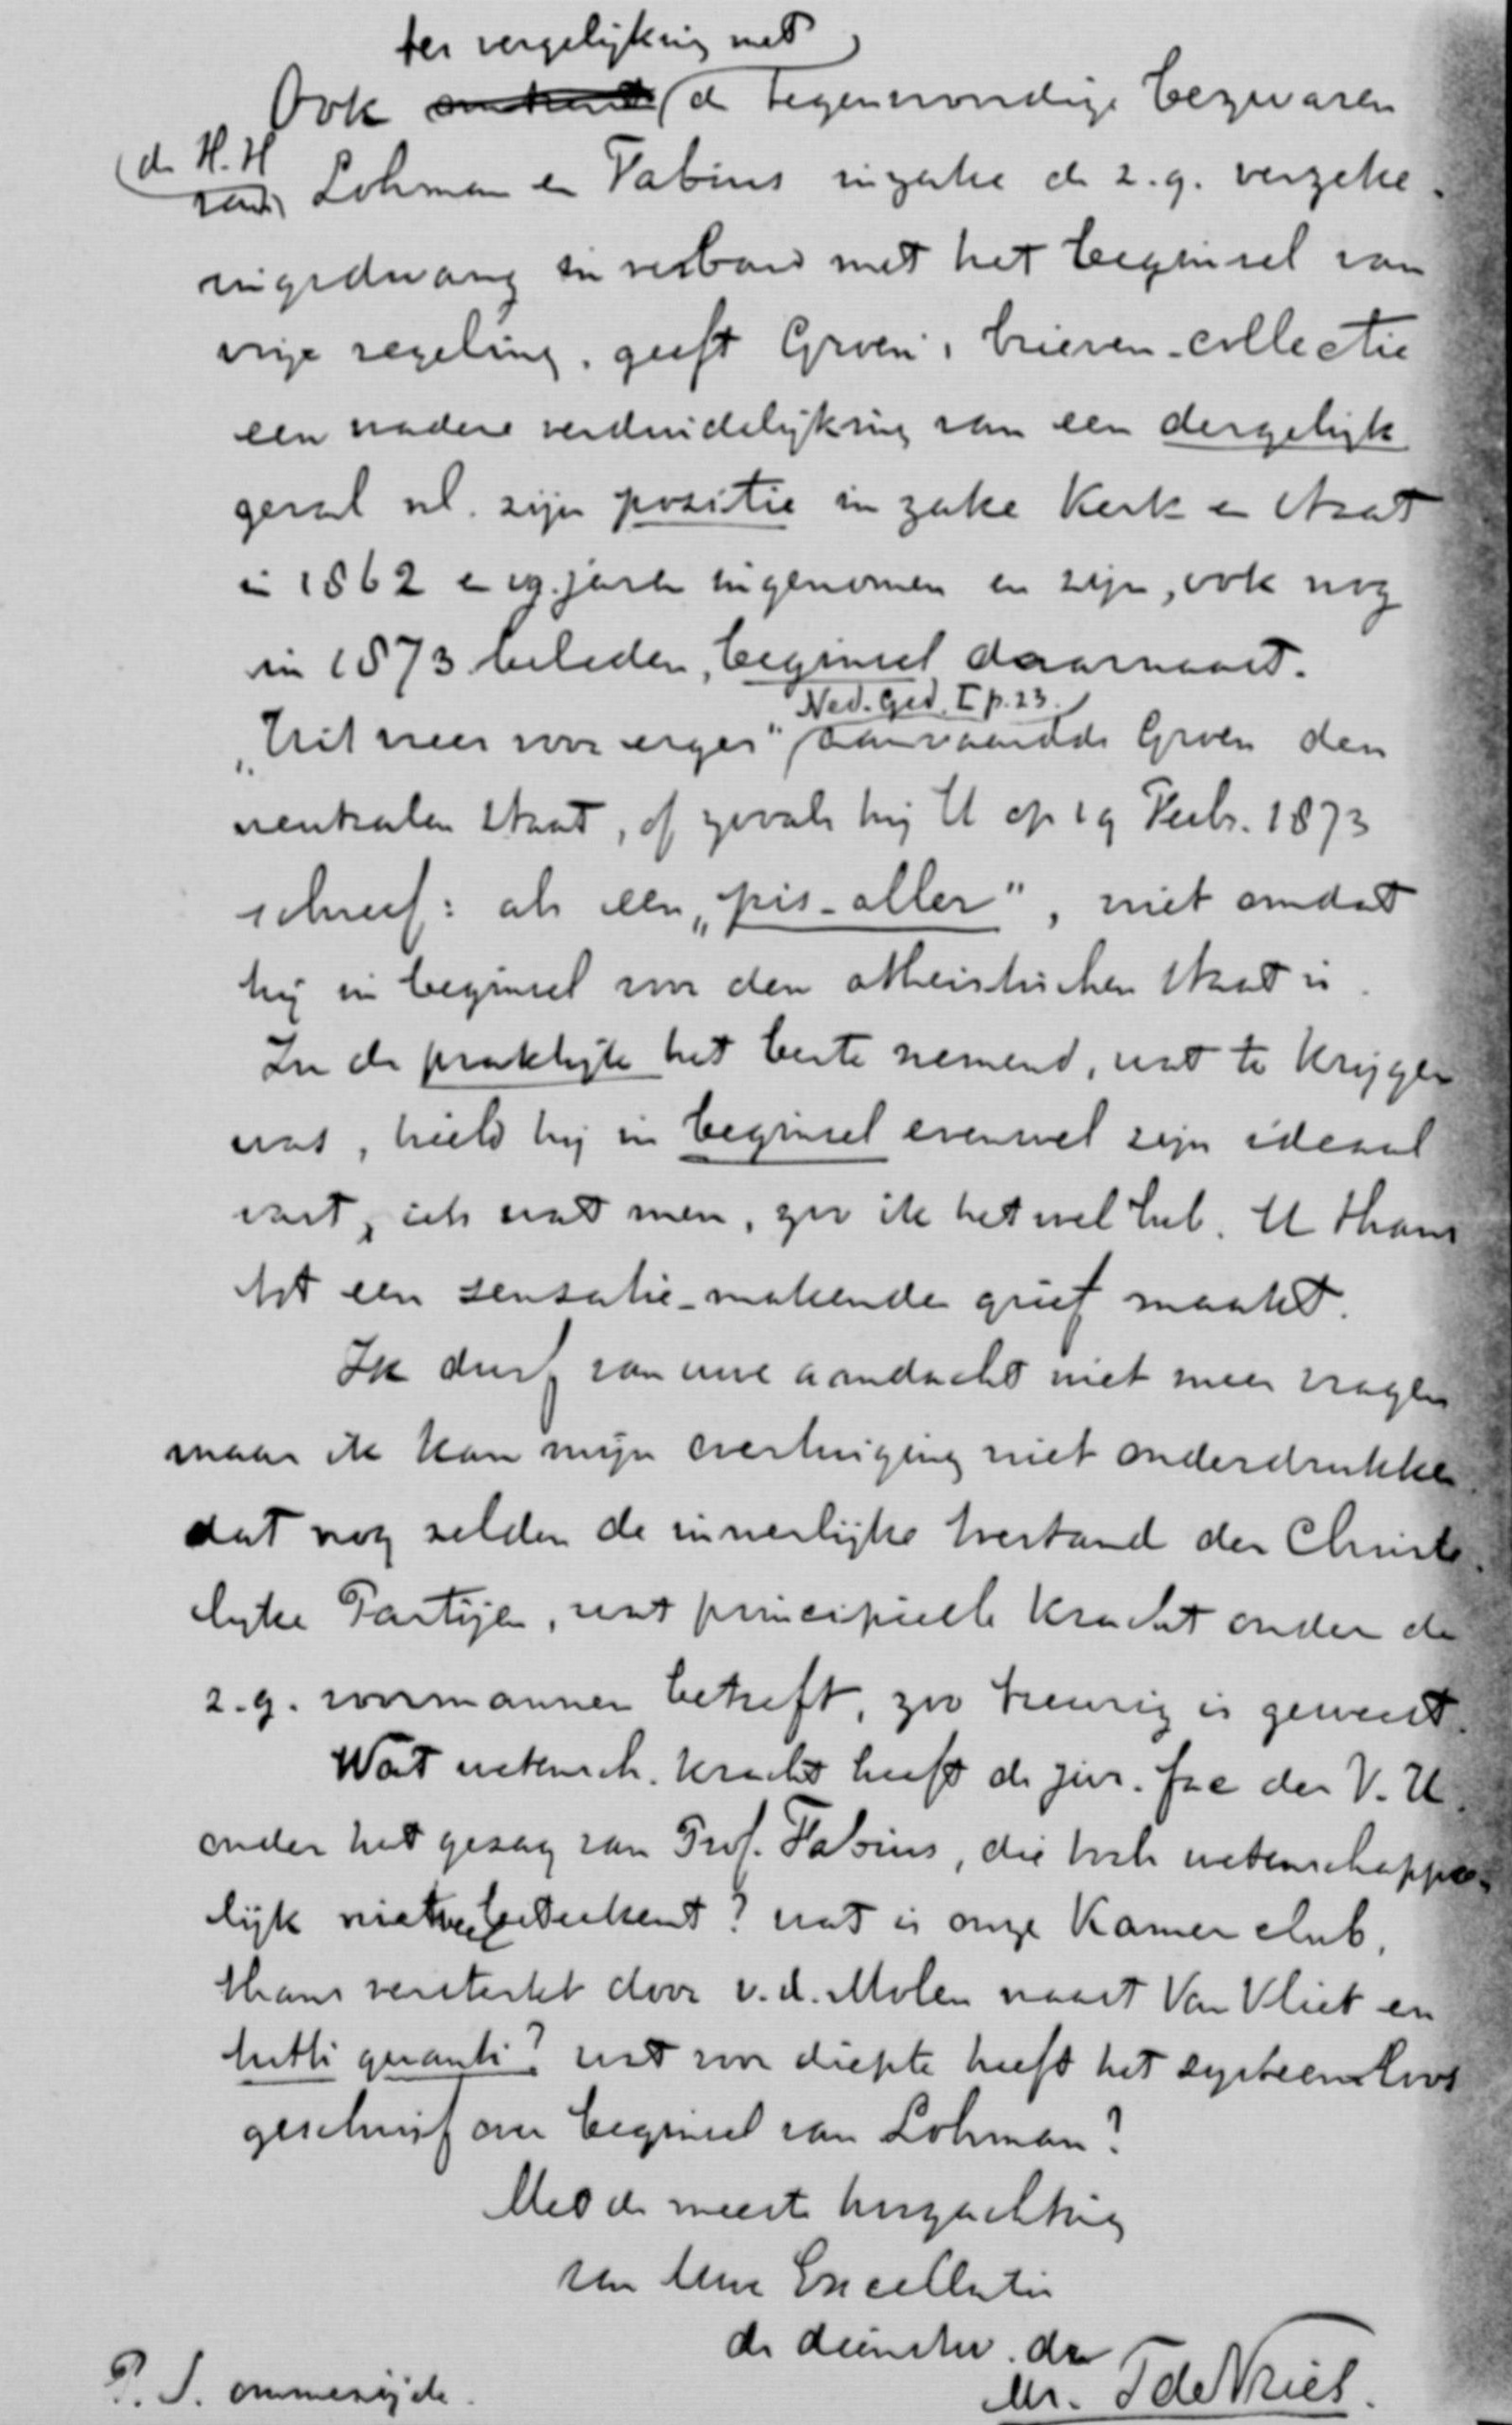 ter vergelijking met
Ook de tegenwoordige bezwaren
de H.H
van Lohman en Fabius inzake de z.g. verzeke-
ringsdwang in verband met het beginsel van
vrije regeling, geeft Groen's brieven-collectie
een nadere verduidelijking van een dergelijk
geval nl. zijn positie in zake Kerk en Staat
in 1862 e vg. jaren ingenomen en zijn, ook nog
in 1873 beleden, beginsel daarnaast.
Ned. Ged. I p. 23.
„Uit vrees voor erger" aanvaardde Groen den
neutralen Staat, of zooals hij U op 19 Febr. 1873
schreef: als een „pis-aller", niet omdat
hij in beginsel voor den atheistischen Staat is.
In de praktijk het beste nemend, wat te krijgen
was, hield hij in beginsel evenwel zijn ideaal
vast, iets wat men, zoo ik het wel heb, U thans
tot een sensatie-makende grief maakt.
Ik durf van uwe aandacht niet meer vragen
maar ik kan mijn overtuiging niet onderdrukken
dat nog zelden de innerlijke toestand der Christe-
lijke Partijen, wat principieele kracht onder de
z.g. voormannen betreft, zoo treurig is geweest.
Wat wetensch. kracht heeft de jur. fac der V. U.
onder het gezag van Prof. Fabius, die toch wetenschappe-
lijk niet veel beteekent? wat is onze Kamerclub,
thans versterkt door v.d. Molen naast Van Vliet en
tutti quanti? wat voor diepte heeft het systeemloos
geschrijf over beginsel van Lohman?
Met de meeste hoogachting
van Uwe Excellentie
de dienstw. dr
Mr. T de Vries.
P. S. ommezijde.